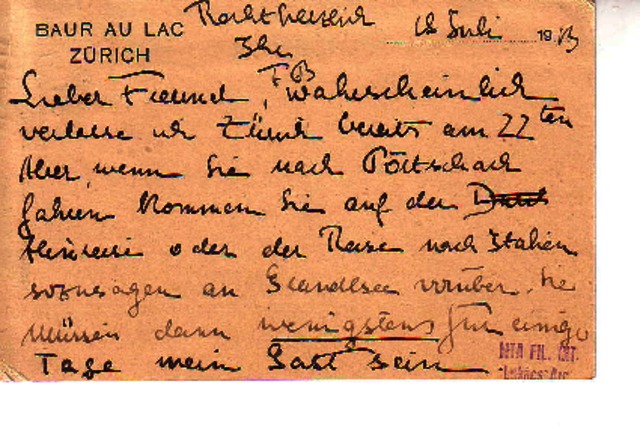 Recht herzlich
BAUR AU LAC
ZÜRICH
Ihr
FB
Juli 1913
Lieber Freund, wahrscheinlich
verlasse ich Zürich bereits am 22ten
Aber, wenn Sie nach Pörtschach
fahren kommen Sie auf der
Hinreise oder der Reise nach Italien
sozusagen am Grundlsee vorüber. Sie
müssen dann wenigstens für einige
Tage mein Gast sein
MTA FIL. INT.
Lukács Arc.